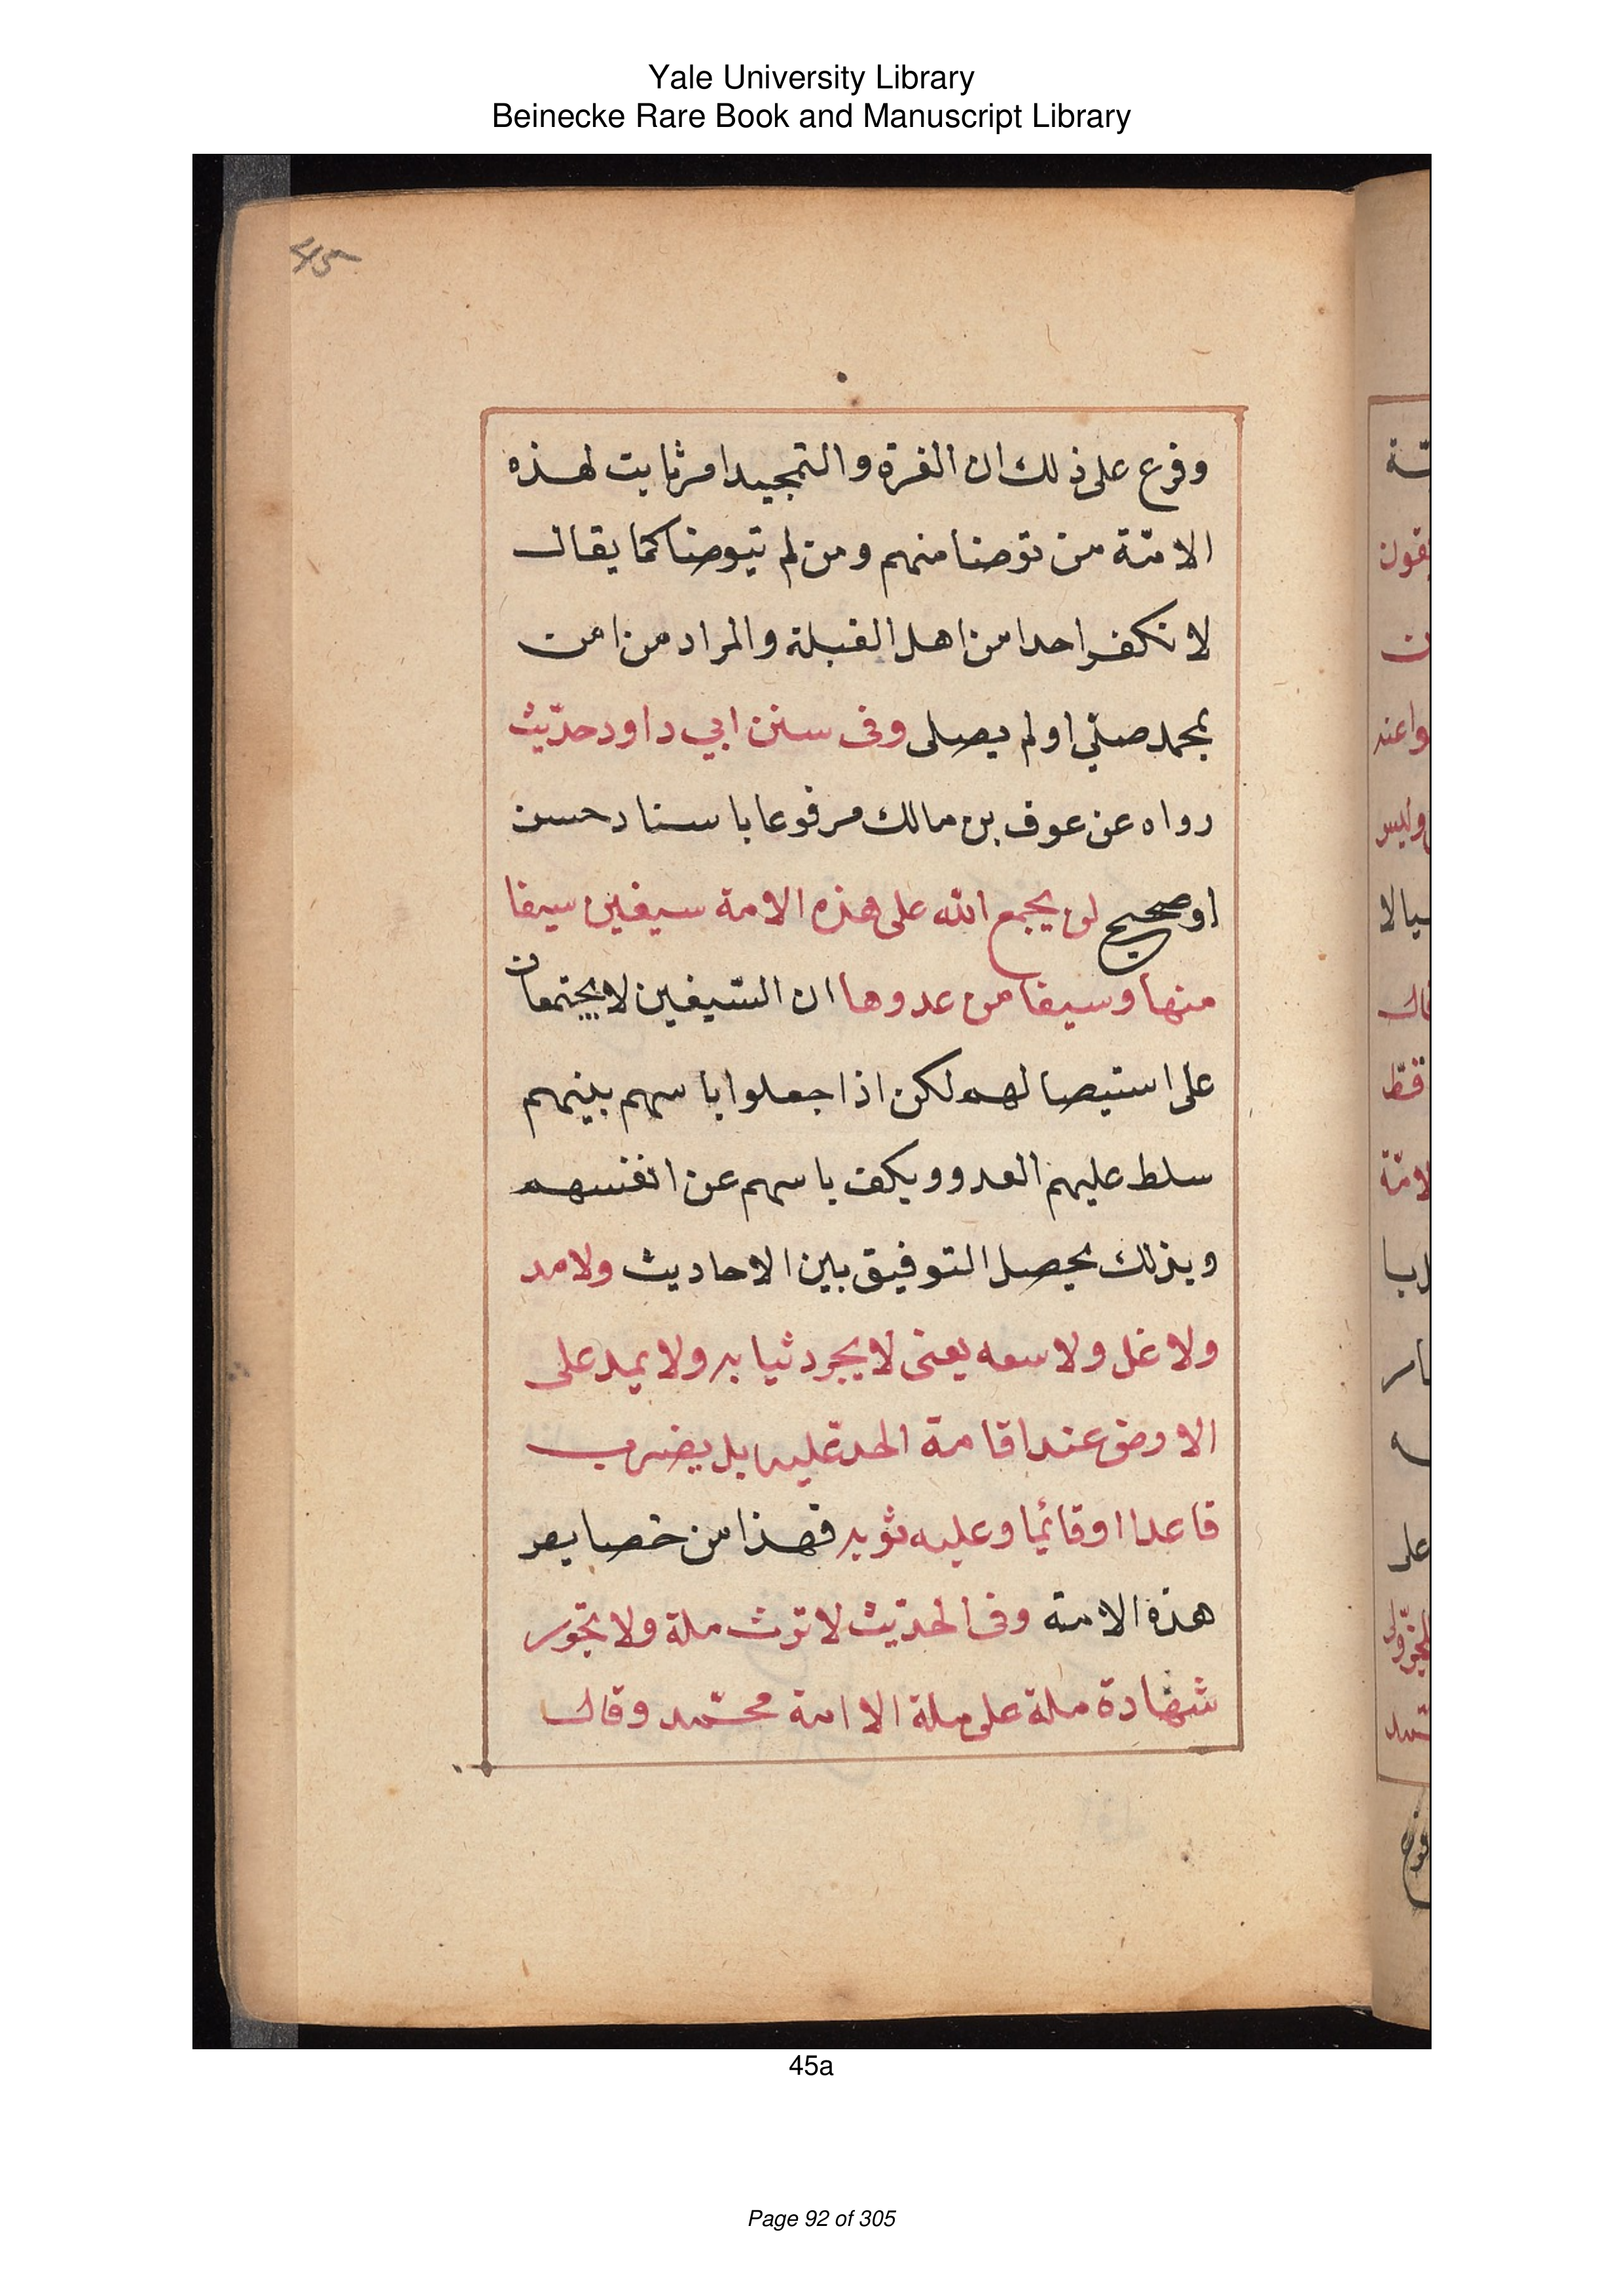 Yale University Library
Beinecke Rare Book and Manuscript Library
45
وفرع على ذلك ان الغرة والتحجيد امر ثابت لهذه
الامّة من توضا منهم ومن لم يتوضا كما يقال
لا نكفر احدا من اهل القبلة والمراد من امن
بمحمد صلّي او لم يصلى وفى سنن ابي داود حدّيث
رواه عن عوف بن مالك مرفوعا باسناد حسن
او صحيح لن يجمع الله على هذه الامة سيفين سيفا
منها وسيفا من عدوها ان السّيفين لا يجتمعان
على استيصالهم لكن اذا جعلوا باسهم بينهم
سلط عليهم العدو ويكف باسهم عن انفسهم
وبذلك يحصل التوفيق بين الاحاديث ولا مد
ولا غل ولا سعه يعنى لا يجرد ثيابه ولا يمد على
الاوض عند اقامة الحد عليه بل يضرب
قاعدا او قائما وعليه ثوبه فهذا من خصايص
هذه الامته وفى الحدّيث لا ترث ملة ولا تجّور
شهادة ملة على ملة الا امة محمّد وقال
45a
Page 92 of 305